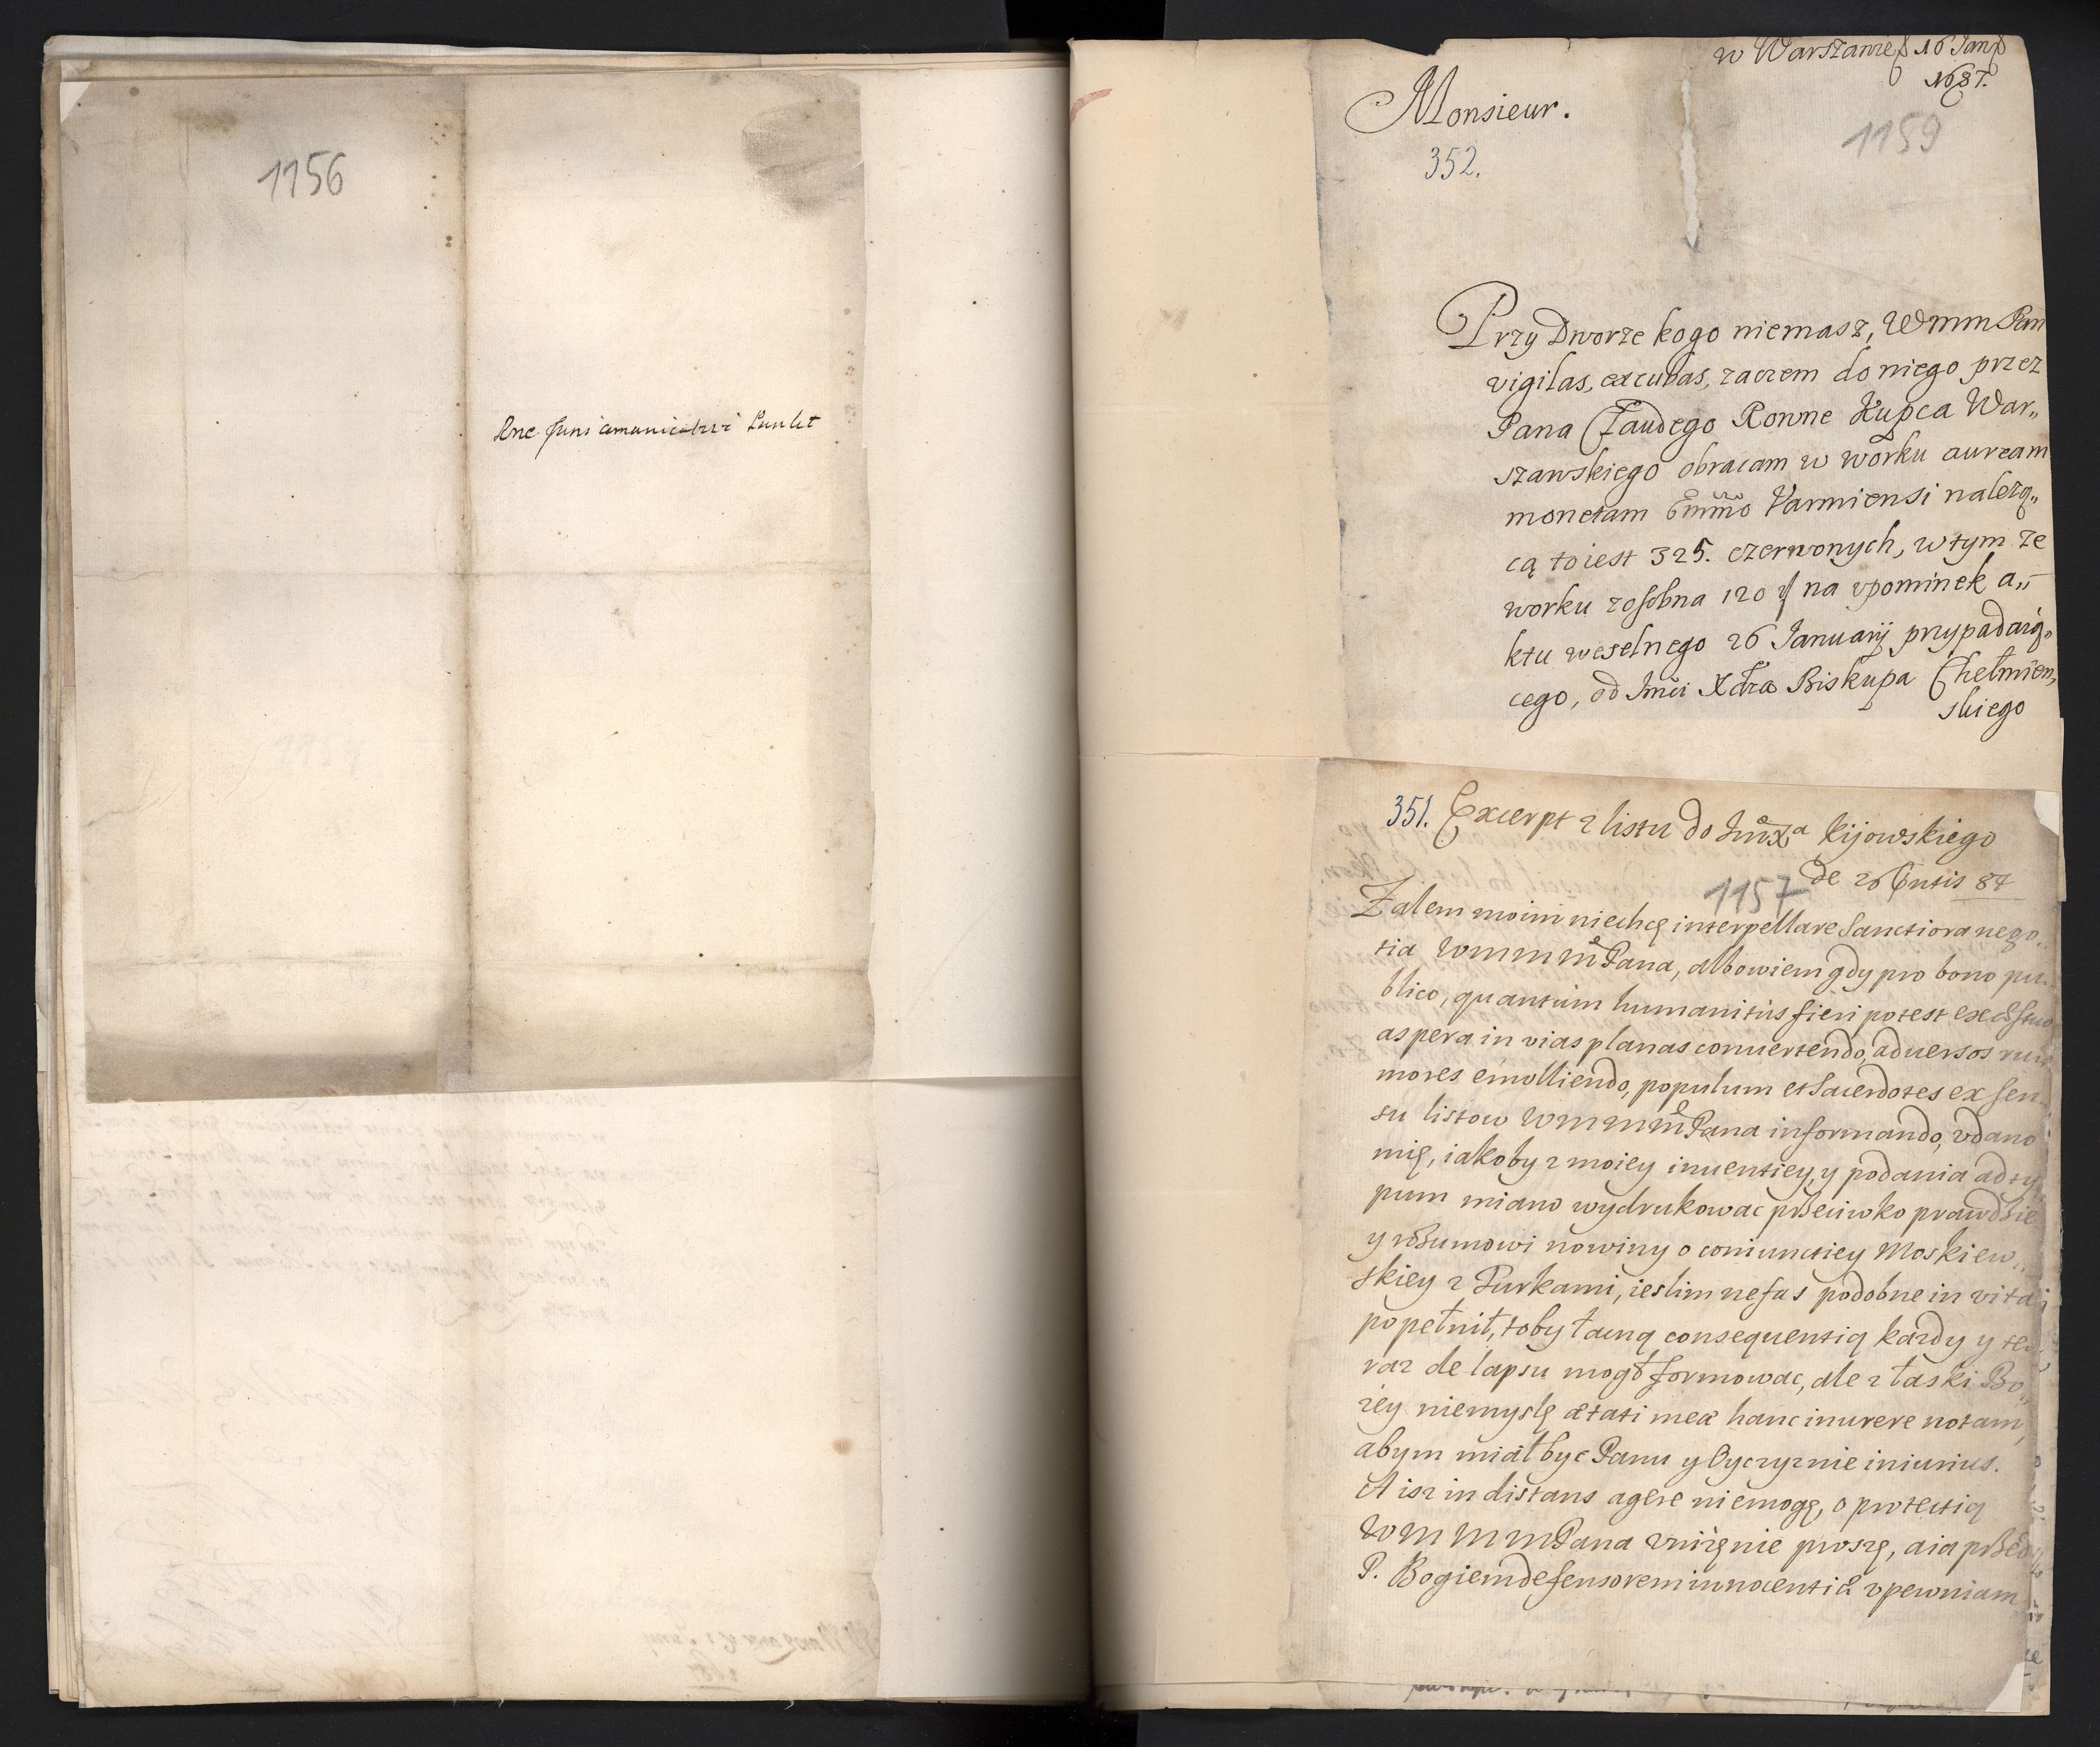 1156
w Warszawie 16 Jan
1687.
Monsieur.
1159
352.
Przy Dworze kogo niemasz, Wmm Pan
vigilas, excubas, zaczem do niego przez
Pana Claudego Rowne Kupca War„
szawskiego obracam w worku auream
monetam Emmo Varmiensi należą„
cą toiest 325. czerwonych, w tym że
worku zosobna 120 na vpominek a„
ktu weselnego 26 Januarij przypadaią„
cego, od Jmci Xdza Biskupa Chełmien„
skiego
351. Excerpt z listu do JmXa Kijowskiego
de 26 Entis 87
1157
Zalem moim niechcę interpellare Sanctiora nego„
tia WMMM Pana, albowiem gdy pro bono pu„
blico, quantum humanitùs fieri potest
aspera in vias planas conuertendo, aduersos ru„
mores emolliendo, populum et Sacerdotes ex sen„
su listow WMMM Pana informando, vdano
mię, iakoby z moiey inuentiey, y podania ad ty„
pum miano wydrukowac przeciwko prawdzie
y rozumowi nowiny o coniunctiey Moskiew„
skiey z Turkami, ieslim nefas podobne in vita
popełnił, toby łacną consequentią kazdy y te„
raz de lapsu mogł formowac, ale z łaski Bo„
zey niemyslę ætati meæ hanc inurere notam,
abym miał byc Panu y Oyczyznie iniurius.
A isz in distans agere niemogę, o protectią
WMMM Pana vniżęnie proszę, a ia przed
P. Bogiem defensorem innocentiæ vpewniam